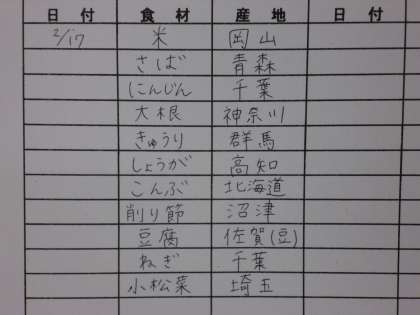 日付 食材 産地 日付
2/17 米 岡山
さば 青森
にんじん 千葉
大根 神奈川
きゅうり 群馬
しょうが 高知
こんぶ 北海道
削り節 沼津
豆腐 佐賀(豆)
ねぎ 千葉
小松菜 埼玉